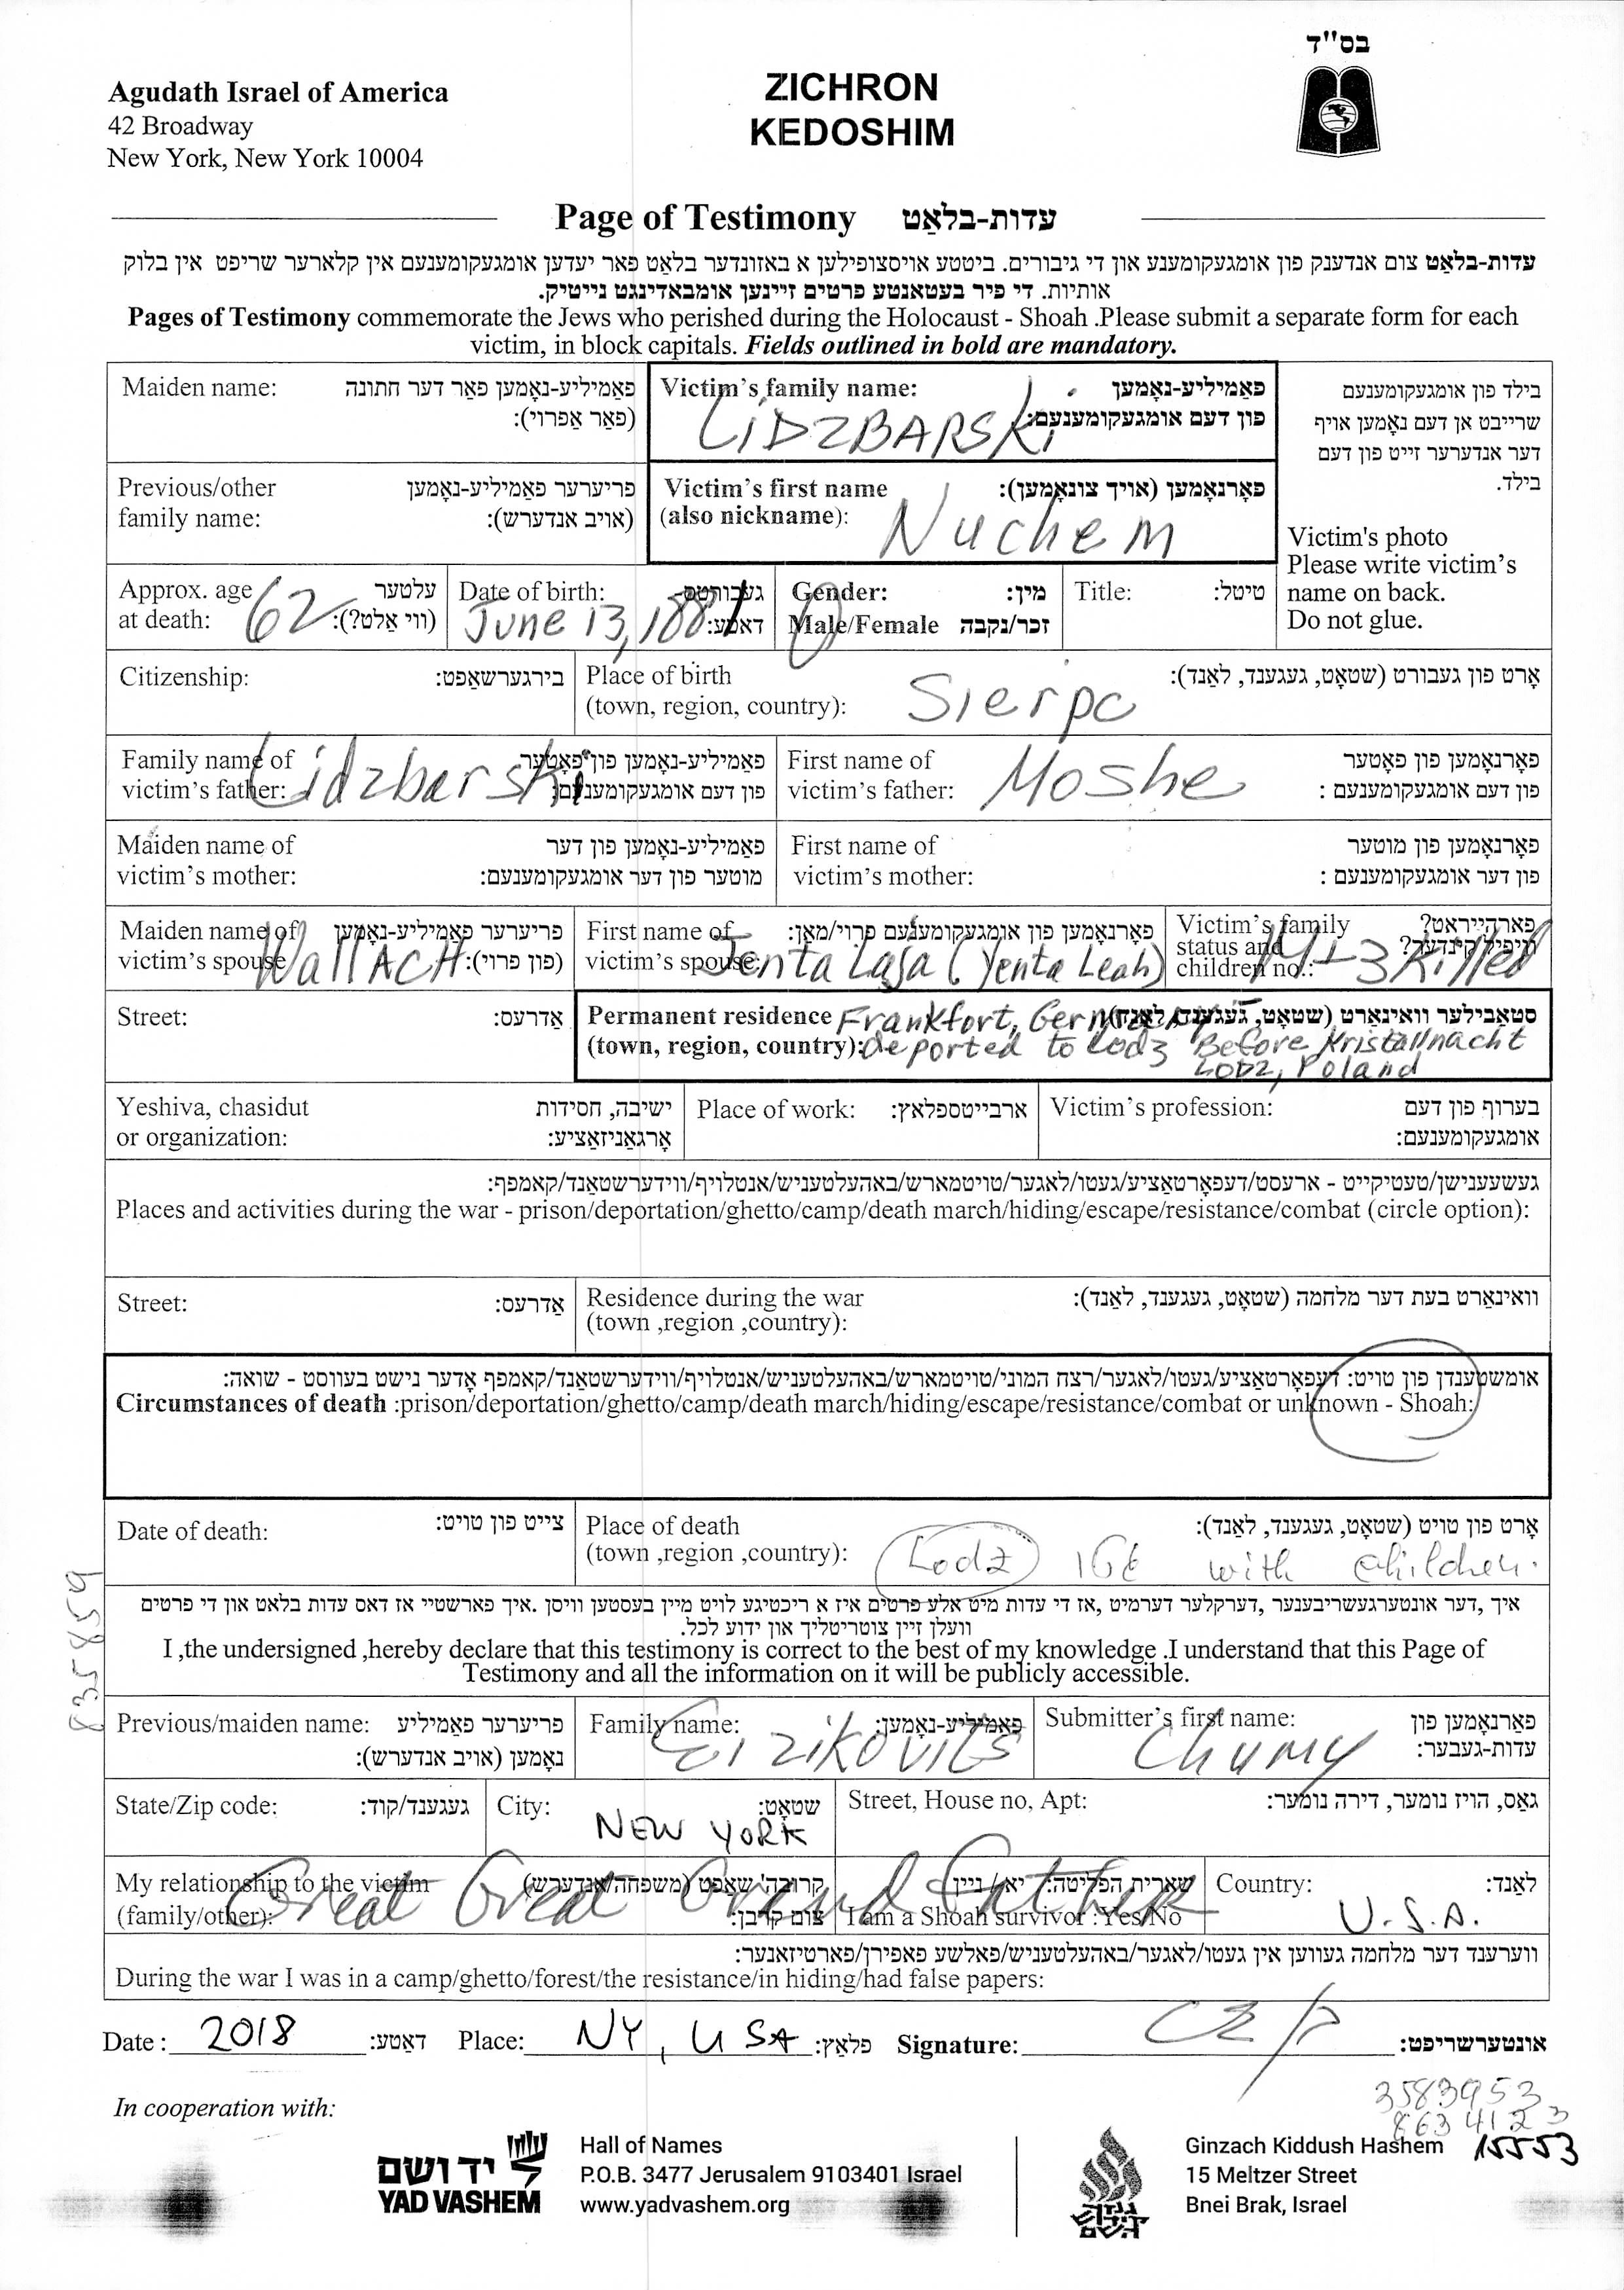 בס"ד
Agudath Israel of America
42 Broadway
New York, New York 10004
ZICHRON
KEDOSHIM
Page of Testimony עדות-בלאַט
עדות-בלאַט צום אנדענק פון אומגעקומענע און די גיבורים. ביטטע אויסצופילען א באזונדער בלאט פאר יעדען אומגעקומענעם אין קלארער שריפט אין בלוק
אותיות. די פיר בעטאנטע פרטים זיינען אומבאדינגט נייטיק.
Pages of Testimony commemorate the Jews who perished during the Holocaust - Shoah .Please submit a separate form for each
victim, in block capitals. Fields outlined in bold are mandatory.
Maiden name: פאַמיליע-נאָמען פאַר דער חתונה
(פאַר אַפרוי):
Victim's family name: פאַמיליע-נאָמען
פון דעם אומגעקומענעם:
LiDZBARSKi
בילד פון אומגעקומענעם
שרייבט אן דעם נאָמען אויף
דער אנדערער זייט פון דעם
בילד.
Victim's photo
Please write victim's
name on back.
Do not glue.
Previous/other פריערער פאַמיליע-נאָמען
family name: (אויב אנדערש):
Victim's first name פאָרנאָמען (אויך צונאָמען):
(also nickname):
Nuchem
Approx. age עלטער
at death: (ווי אַלט?):
62
Date of birth: געבורטס-
דאַטע:
June 13, 1881
Gender: מין:
Male/Female זכר/נקבה
Title: טיטל:
Citizenship: בירגערשאַפט:
Place of birth אָרט פון געבורט (שטאָט, געגענד, לאַנד):
(town, region, country):
Sierpc
Family name of פאַמיליע-נאָמען פון פאָטער
victim's father: פון דעם אומגעקומענעם:
Lidzbarski
First name of פאָרנאָמען פון פאָטער
victim's father: פון דעם אומגעקומענעם :
Moshe
Maiden name of פאַמיליע-נאָמען פון דער
victim's mother: מוטער פון דער אומגעקומענעם:
First name of פאָרנאָמען פון מוטער
victim's mother: פון דער אומגעקומענעם :
Maiden name of פריערער פאַמיליע-נאָמען
victim's spouse (פון פרוי):
WallACH
First name of פאָרנאָמען פון אומגעקומענעם פרוי/מאַן:
victim's spouse:
Jenta Laja (Yenta Leah)
Victim's family פארהייראט?
status and וויפיל קינדער?
children no.:
M+3 killed
Street: אַדרעס:
Permanent residence סטאַבילער וואוינאָרט (שטאָט, געגענד, לאַנד):
(town, region, country):
Frankfort, Germany
deported to Lodz Before Kristallnacht
LODZ, Poland
Yeshiva, chasidut ישיבה, חסידות
or organization: אָרגאַניזאַציע:
Place of work: ארבייטספלאץ:
Victim's profession: בערוף פון דעם
אומגעקומענעם:
געשעענישן/טעטיקייט - ארעסט/דעפאָרטאַציע/געטו/לאגער/טויטמארש/באהעלטעניש/אנטלויף/ווידערשטאנד/קאמפף:
Places and activities during the war - prison/deportation/ghetto/camp/death march/hiding/escape/resistance/combat (circle option):
Street: אַדרעס:
Residence during the war וואוינאָרט בעת דער מלחמה (שטאָט, געגענד, לאַנד):
(town ,region ,country):
אומשטענדן פון טויט: דעפאָרטאַציע/געטו/לאגער/רצח המוני/טויטמארש/באהעלטעניש/אנטלויף/ווידערשטאנד/קאמפף אָדער נישט בעווסט - שואה:
Circumstances of death :prison/deportation/ghetto/camp/death march/hiding/escape/resistance/combat or unknown - Shoah:
Date of death: צייט פון טויט:
Place of death אָרט פון טויט (שטאָט, געגענד, לאַנד):
(town ,region ,country):
Lodz with children.
איך ,דער אונטערגעשריבענער ,דערקלער דערמיט ,אז די עדות מיט אלע פרטים איז א ריכטיגע לויט מיין בעסטען וויסן .איך פארשטיי אז דאס עדות בלאט און די פרטים
וועלן זיין צוטריטליך און ידוע לכל.
I ,the undersigned ,hereby declare that this testimony is correct to the best of my knowledge .I understand that this Page of
Testimony and all the information on it will be publicly accessible.
835859
Previous/maiden name: פריערער פאַמיליע
נאָמען (אויב אנדערש):
Family name: פאַמיליע-נאָמען:
Eizikovits
Submitter's first name: פאַרנאָמען פון
עדות-געבער:
Chumy
State/Zip code: געגענד/קוד:
City: שטאָט:
NEW YORK
Street, House no, Apt: גאַס, הויז נומער, דירה נומער:
My relationship to the victim קרובה'שאַפט (משפחה/אנדערש)
(family/other): צום קרבן:
Great Great Grand father
שארית הפליטה: יא / ניין
I am a Shoah survivor :Yes/No
Country: לאַנד:
U.S.A.
ווערענד דער מלחמה געווען אין געטו/לאגער/באהעלטעניש/פאלשע פאפירן/פארטיזאנער:
During the war I was in a camp/ghetto/forest/the resistance/in hiding/had false papers:
Date : 2018 דאַטע: Place: NY, USA פלאַץ: Signature: אונטערשריפט:
In cooperation with:
3583953
8634123
15553
יד ושם
YAD VASHEM
Hall of Names
P.O.B. 3477 Jerusalem 9103401 Israel
www.yadvashem.org
גנזך
קידוש
השם
Ginzach Kiddush Hashem
15 Meltzer Street
Bnei Brak, Israel